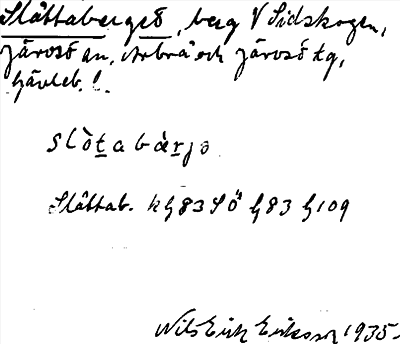 Slåttaberget, berg V Sidskogen,
Järvsö sn, Arbrå och Järvsö tg,
Gävleb. l.
slòtabàrjə
Slåttab. kg 83 SÖ g 83 g 109
Nils Erik Eriksson 1935.